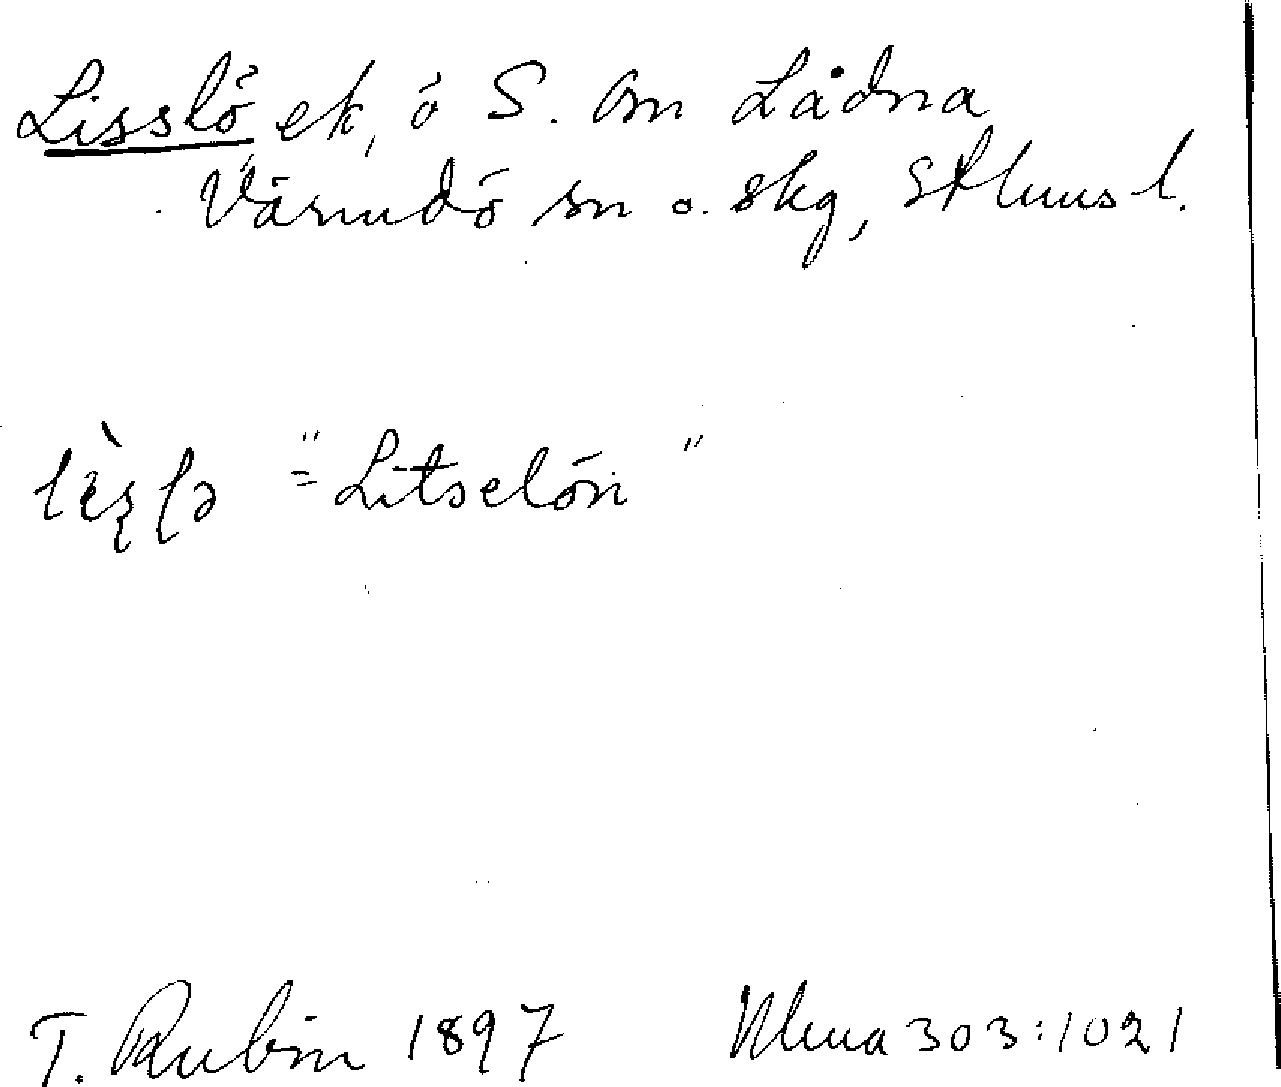 Lisslö ek, ö S. om Lådna
Värmdö sn o. skg, Sthlms l.
= "Litselön"
T. Rubin 1897 Ulma 303:1021